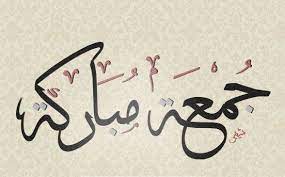 جُمعة مباركة